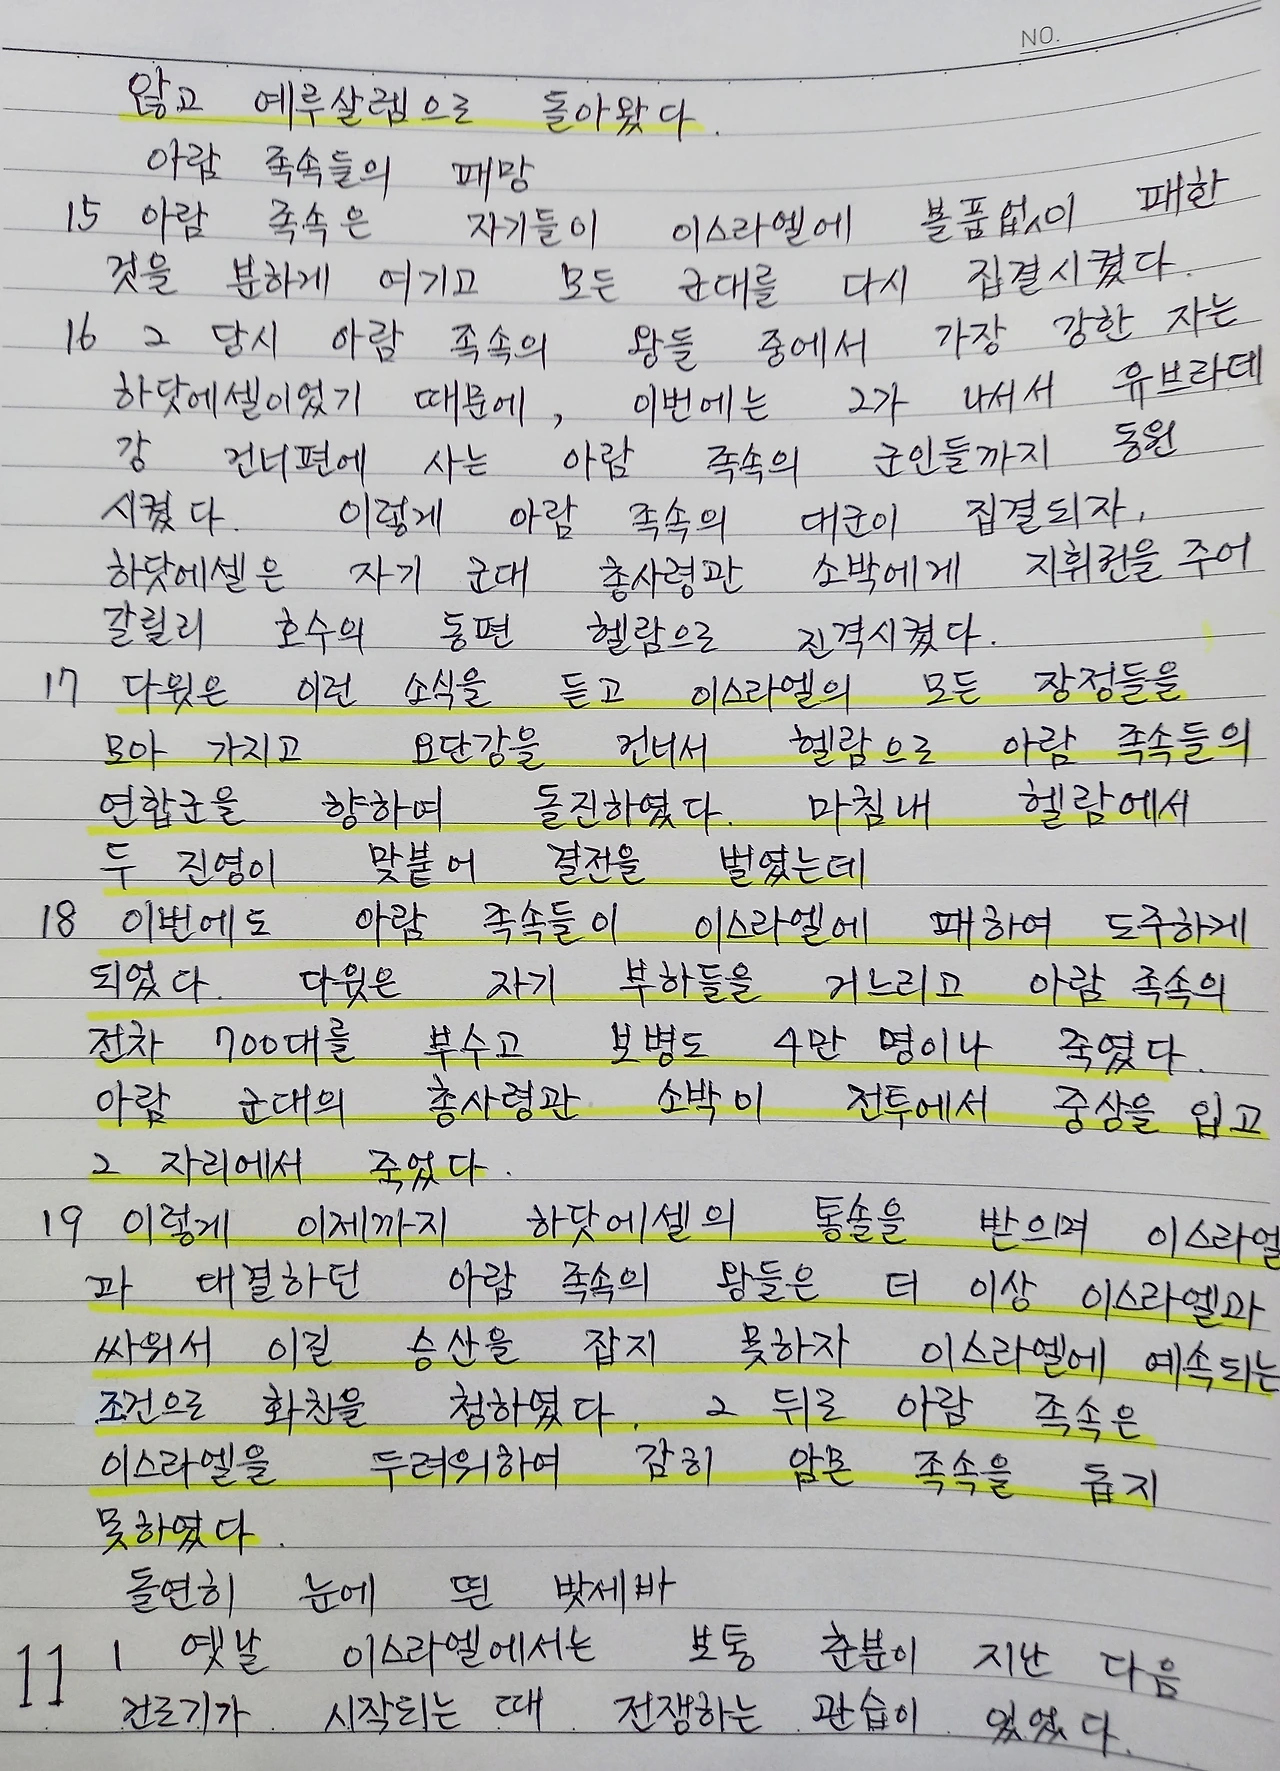 NO.
않고 예루살렘으로 돌아왔다.
아람 족속들의 패망
15 아람 족속은 자기들이 이스라엘에 볼품없이 패한
것을 분하게 여기고 모든 군대를 다시 집결시켰다.
16 그 당시 아람 족속의 왕들 중에서 가장 강한 자는
하닷에셀이었기 때문에, 이번에는 그가 나서서 유브라데
강 건너편에 사는 아람 족속의 군인들까지 동원
시켰다. 이렇게 아람 족속의 대군이 집결되자,
하닷에셀은 자기 군대 총사령관 소박에게 지휘권을 주어
갈릴리 호수의 동편 헬람으로 진격시켰다.
17 다윗은 이런 소식을 듣고 이스라엘의 모든 장정들을
모아 가지고 요단강을 건너서 헬람으로 아람 족속들의
연합군을 향하여 돌진하였다. 마침내 헬람에서
두 진영이 맞붙어 결전을 벌였는데
18 이번에도 아람 족속들이 이스라엘에 패하여 도주하게
되었다. 다윗은 자기 부하들을 거느리고 아람 족속의
전차 700대를 부수고 보병도 4만 명이나 죽였다.
아람 군대의 총사령관 소박이 전투에서 중상을 입고
그 자리에서 죽었다.
19 이렇게 이제까지 하닷에셀의 통솔을 받으며 이스라엘
과 대결하던 아람 족속의 왕들은 더 이상 이스라엘과
싸워서 이길 승산을 잡지 못하자 이스라엘에 예속되는
조건으로 화친을 청하였다. 그 뒤로 아람 족속은
이스라엘을 두려워하여 감히 암몬 족속을 돕지
못하였다.
돌연히 눈에 띈 밧세바
11 1 옛날 이스라엘에서는 보통 춘분이 지난 다음
건조기가 시작되는 때 전쟁하는 관습이 있었다.